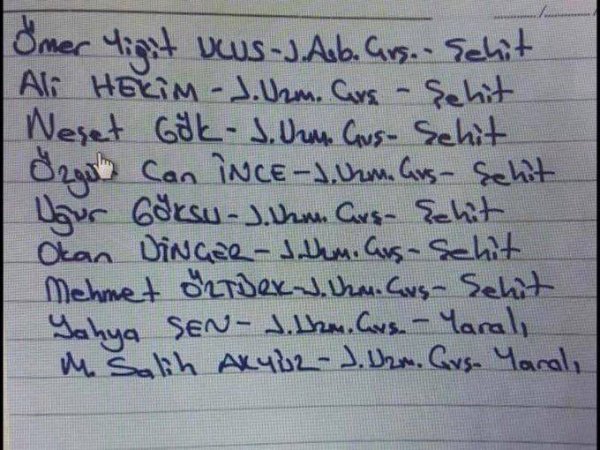 Ömer Yigit ULUS - J.Asb. Çvş. - Şehit
Ali HEKİM - J.Uzm. Çvş - Şehit
Neşet GÖK - J.Uzm. Çvş - Şehit
Özgür Can İNCE - J.Uzm. Çvş - Şehit
Uğur GÖKSU - J.Uzm. Çvş - Şehit
Okan DİNÇER - J.Uzm. Çvş - Şehit
Mehmet ÖZTÜRK - J.Uzm. Çvş - Şehit
Yahya ŞEN - J.Uzm. Çvş. - Yaralı
M. Salih AKYÜZ - J.Uzm. Çvş - Yaralı